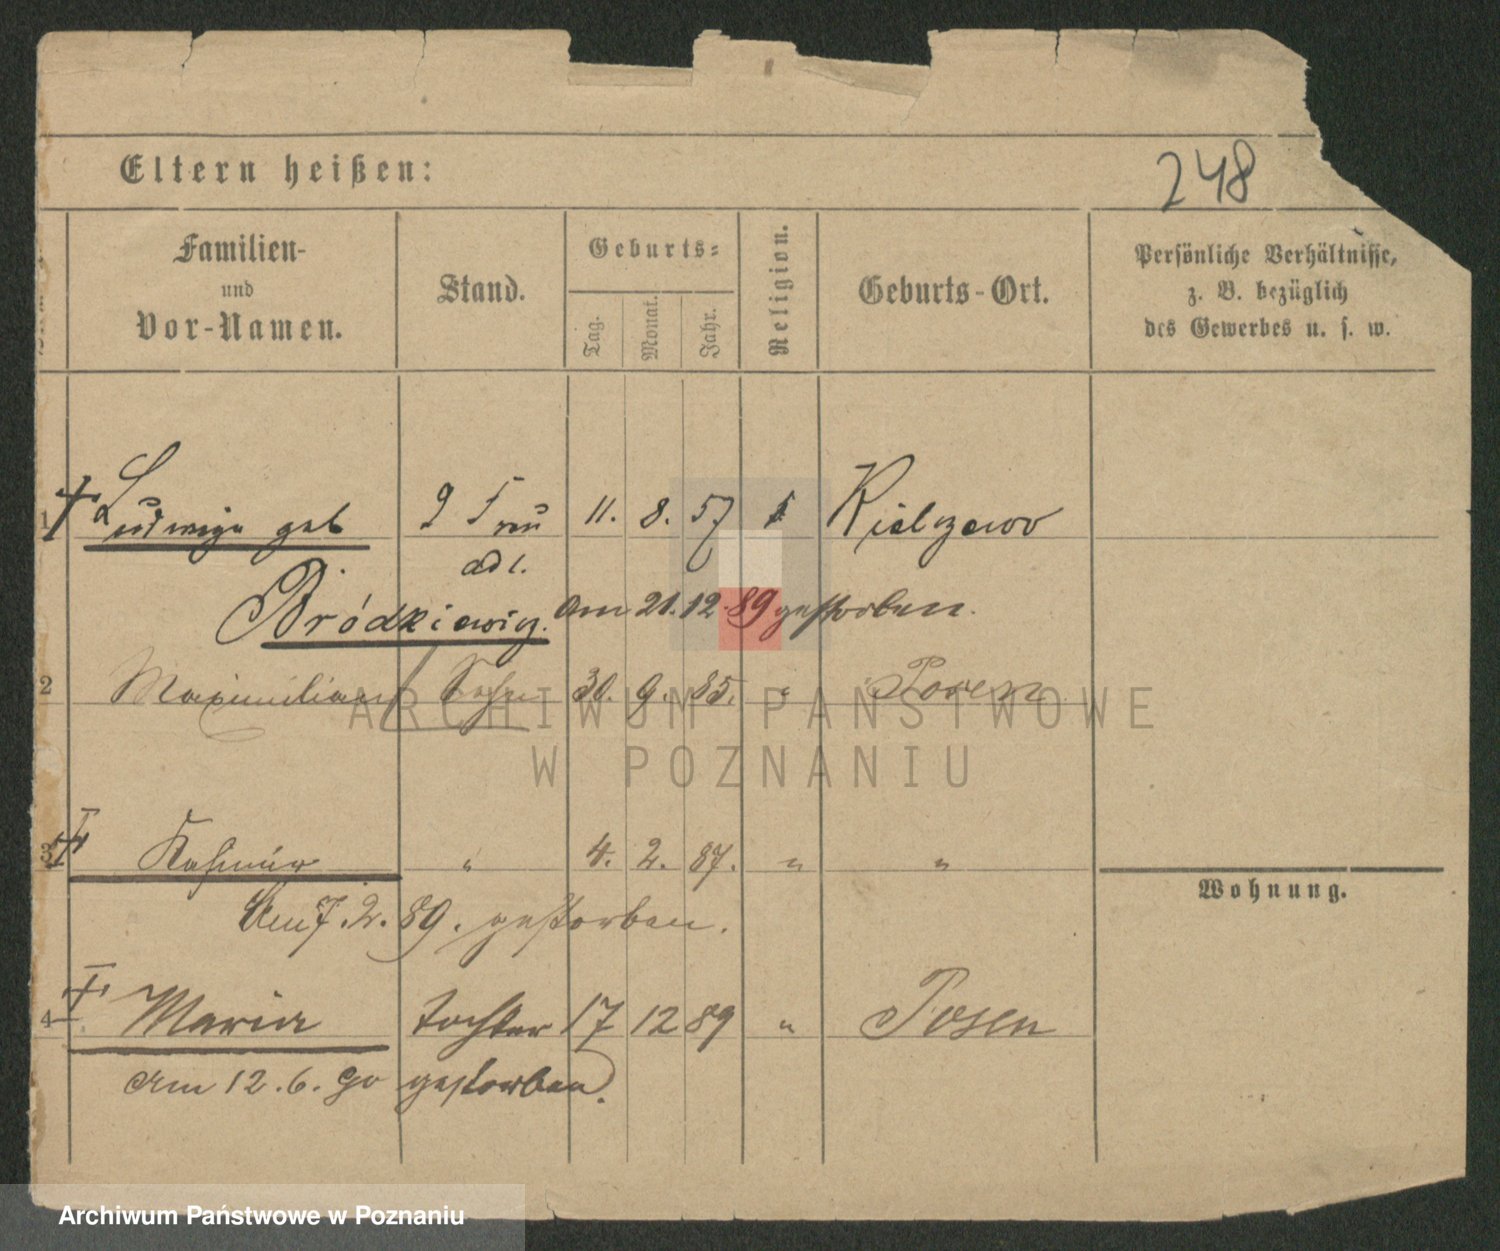 248
Eltern heißen:
Familien-
und
Vor-Namen.
Stand.
Geburts-
Tag.
Monat.
Jahr.
Religion.
Geburts-Ort.
Persönliche Verhältnisse,
z. B. bezüglich
des Gewerbes u. s. w.
1 Ludwiga geb Frau 11. 8. 57 Kielczewo
adl.
Bródkiewicz. Am 21.12.89 gestorben.
2 Maximilian Sohn 30. 9. 85. " Posen
3 Kasimir " 4. 2. 87. " "
Am 7.2.89. gestorben.
Wohnung.
4 Maria Tochter 17 12 89 " Posen
Am 12.6.90 gestorben.
ARCHIWUM PAŃSTWOWE
W POZNANIU
Archiwum Państwowe w Poznaniu